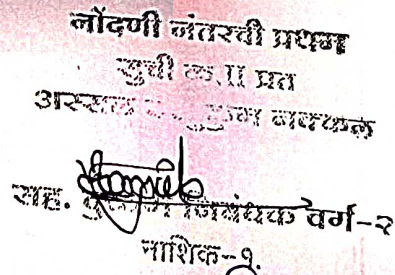 नोंदणी नंतरची प्रथम
सुची क्र.II प्रत
अस्सल नक्कल
सह. वर्ग-२
नाशिक-१